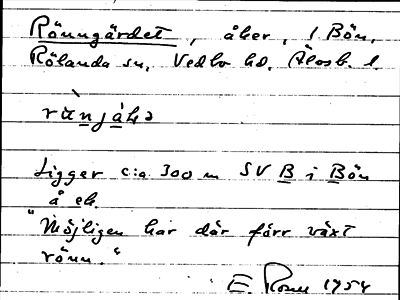 Rönngärdet, åker, 1 Bön,
Rölanda sn, Vedbo hd, Älvsb. l.
Ligger c:a 300 m SV B i Bön
å ek.
"Möjligen har där förr växt
rönn."
E. 1954